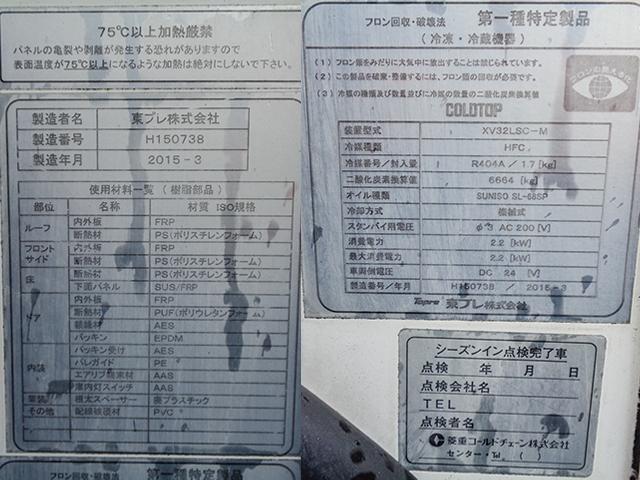 75℃以上加熱厳禁
パネルの亀裂や剥離が発生する恐れがありますので
表面温度が75℃以上になるような加熱は絶対にしないで下さい。
製造者名 東プレ株式会社
製造番号 H150738
製造年月 2015-3
使用材料一覧(樹脂部品)
部位 名称 材質 ISO規格
ルーフ 内外板 FRP
断熱材 PS(ポリスチレンフォーム)
フロント サイド 内外板 FRP
断熱材 PS(ポリスチレンフォーム)
床 断熱材 PS(ポリスチレンフォーム)
下面パネル SUS/FRP
ドア 内外板 FRP
断熱材 PUF(ポリウレタンフォーム)
AES
パッキン EPDM
内装 パッキン受け AES
バレガイド PE
エアリブ AAS
庫内灯スイッチ AAS
根太スペーサー 廃プラスチック
その他 PVC
フロン回収・破壊法 第一種特定製品
フロン回収・破壊法 第一種特定製品
(冷凍・冷蔵機器)
(1)フロン類をみだりに大気中に放出することは禁じられています。
(2)この製品を廃棄・整備するには、フロン類の回収が必要です。
(3)冷媒の種類及び数量並びに冷媒の数量の二酸化炭素換算値
COLDTOP
装置型式 XV32LSC-M
冷媒種類 HFC
冷媒番号/封入量 R404A / 1.7 [kg]
二酸化炭素換算値 6664 [kg]
オイル種類 SUNISO SL-68SP
冷却方式 機械式
スタンバイ用電圧 φ3 AC 200 [V]
消費電力 2.2 [kW]
最大消費電力 2.2 [kW]
車両側電圧 DC 24 [V]
製造番号/年月 H150738 / 2015-3
Topre 東プレ株式会社
シーズンイン点検完了車
点検 年 月 日
点検会社名
TEL
点検者名
菱重コールドチェーン株式会社
センター・Tel ( )